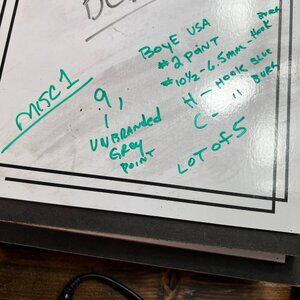 MISC 1
9,
1
UNBRANDED
GREY
POINT
BOYE USA
#2 POINT
#10½-6.5mm-HOOK BURG
H-HOOK BLUE
C- " BURG
LOT OF 5